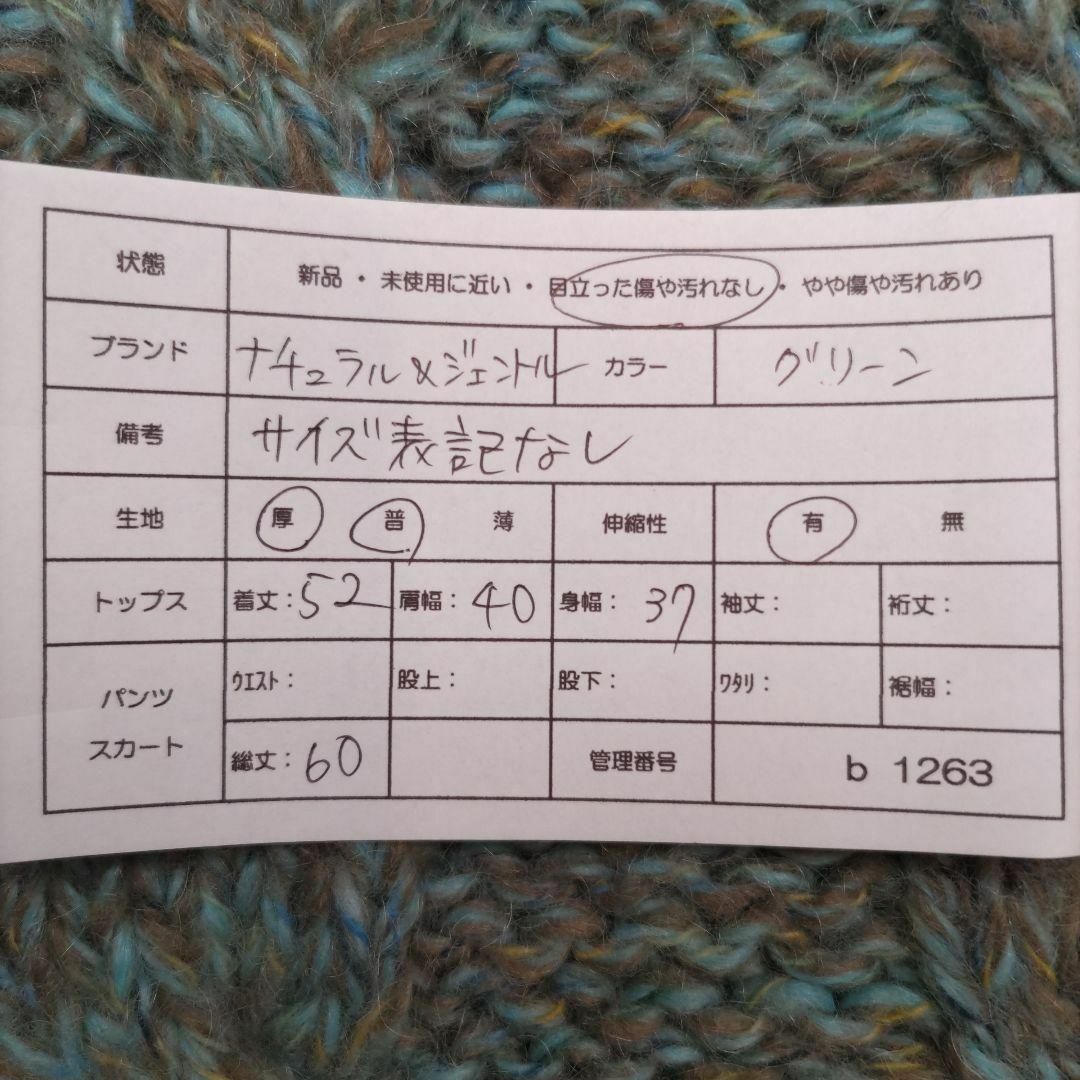 状態 新品・未使用に近い・目立った傷や汚れなし・やや傷や汚れあり
ブランド ナチュラル&ジェントル カラー グリーン
備考 サイズ表記なし
生地 厚 普 薄 伸縮性 有 無
トップス 着丈：52 肩幅：40 身幅：37 袖丈： 裄丈：
パンツ スカート ｳｴｽﾄ： 股上： 股下： ﾜﾀﾘ： 裾幅：
総丈：60 管理番号 b 1263